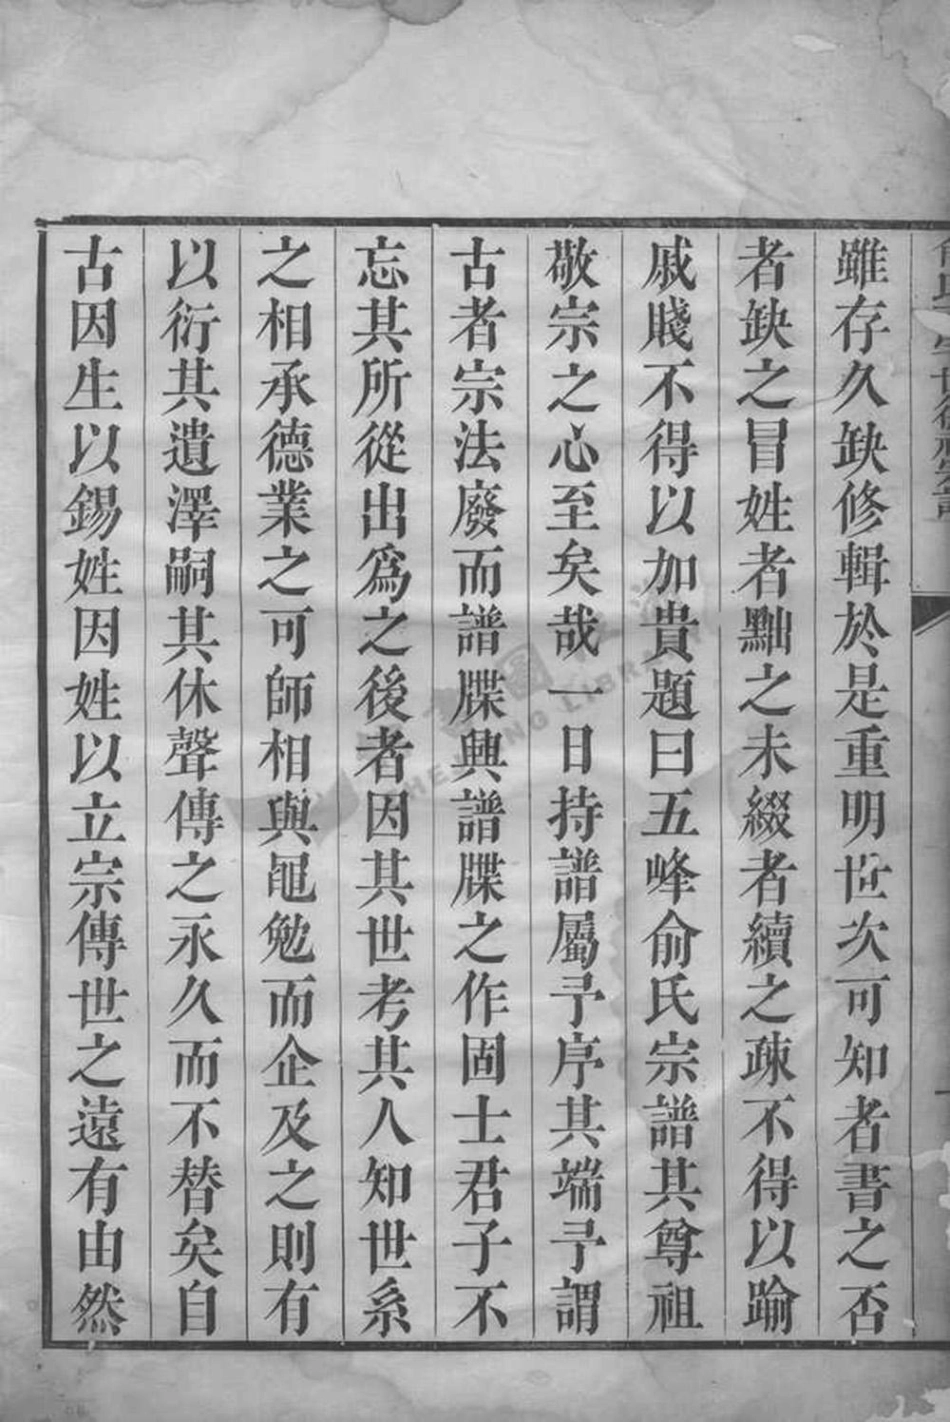 雖存久缺修輯於是重明世次可知者書之否
者缺之冒姓者黜之未綴者續之疎不得以踰
戚賤不得以加貴題曰五峰俞氏宗譜其尊祖
敬宗之心至矣哉一日持譜屬予序其端予謂
古者宗法廢而譜牒興譜牒之作固士君子不
忘其所從出為之後者因其世考其人知世系
之相承德業之可師相與黽勉而企及之則有
以衍其遺澤嗣其休聲傳之永久而不替矣自
古因生以錫姓因姓以立宗傳世之遠有由然
圖
ZHEJIANG LIBRARY